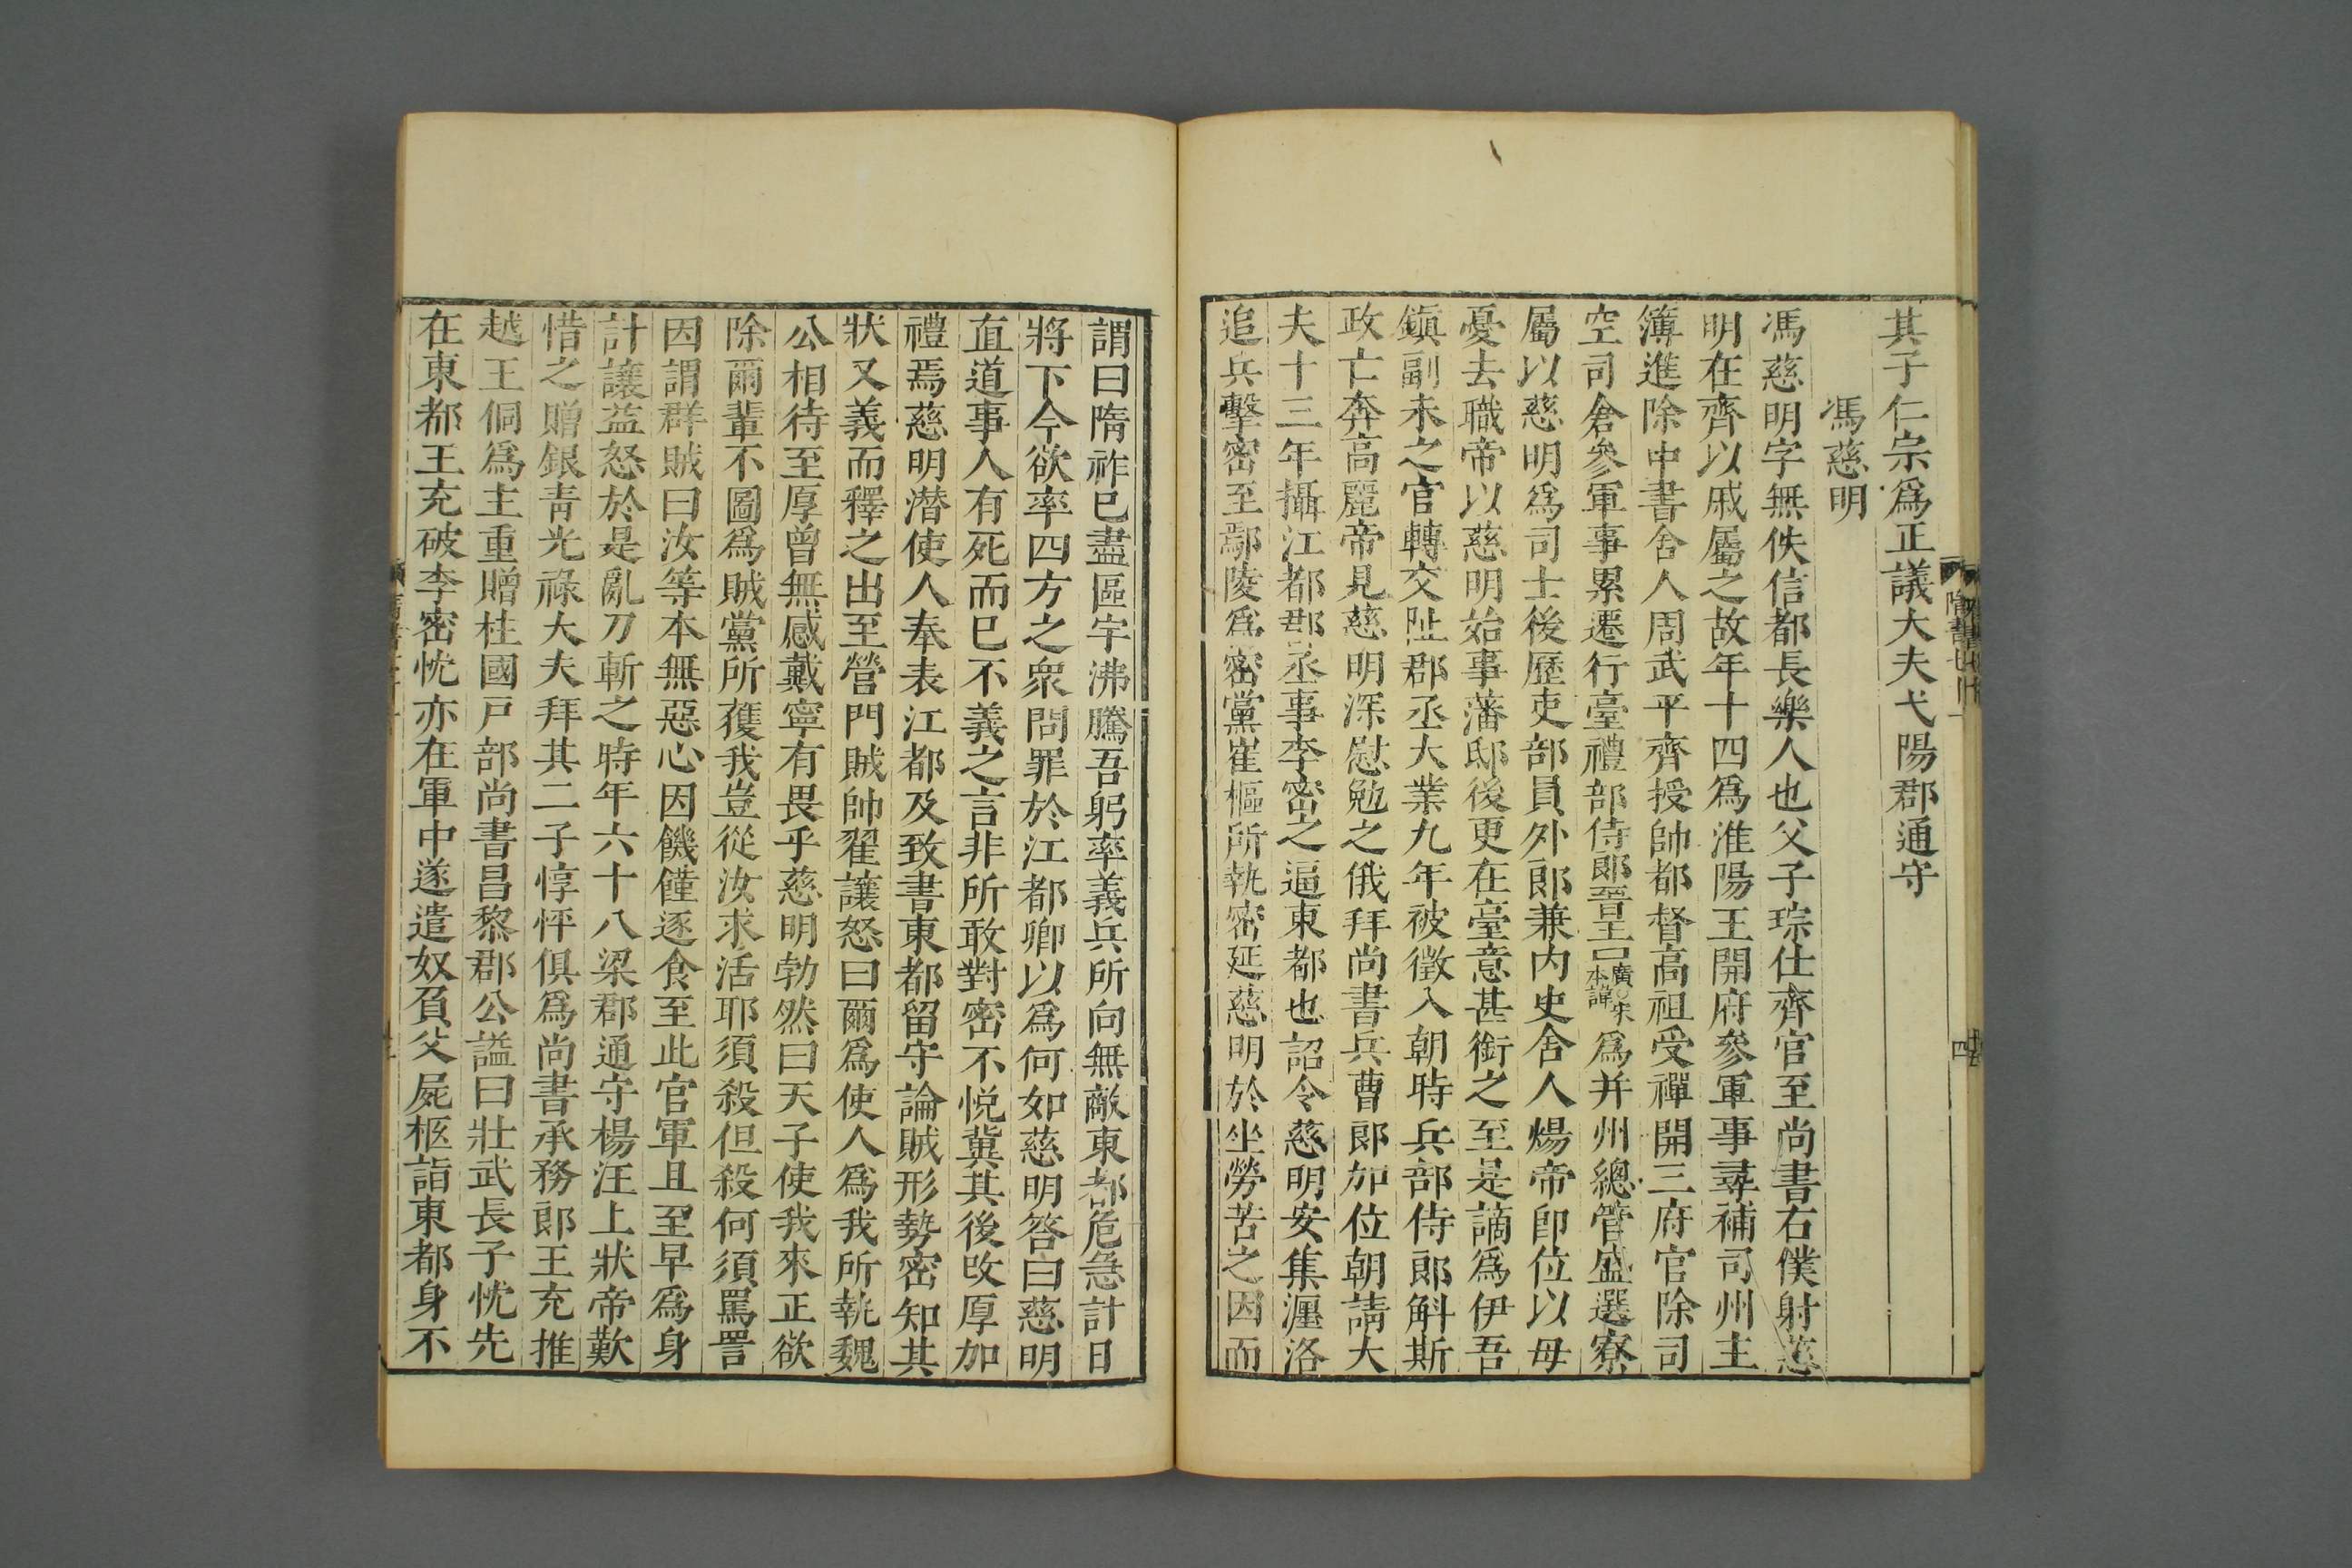 其子仁宗爲正議大夫弋陽郡通守
馮慈明
馮慈明字無佚信都長樂人也父子琮仕齊官至尚書右僕射慈
明在齊以戚屬之故年十四爲淮陽王開府參軍事尋補司州主
簿進除中書舍人周武平齊授帥都督高祖受禪開三府官除司
空司倉參軍事累遷行臺禮部侍郎晉王廣○宋本諱爲并州總管盛選寮
屬以慈明爲司士後歷吏部員外郎兼內史舍人煬帝即位以母
憂去職帝以慈明始事藩邸後更在臺意甚銜之至是謫爲伊吾
鎮副未之官轉交阯郡丞大業九年被徵入朝時兵部侍郎斛斯
政亡奔高麗帝見慈明深慰勉之俄拜尚書兵曹郎加位朝請大
夫十三年攝江都郡丞事李密之逼東都也詔令慈明安集瀍洛
追兵擊密至鄢陵爲密黨崔樞所執密延慈明於坐勞苦之因而
謂曰隋祚已盡區宇沸騰吾躬率義兵所向無敵東都危急計日
將下今欲率四方之衆問罪於江都卿以爲何如慈明答曰慈明
直道事人有死而已不義之言非所敢對密不悅冀其後改厚加
禮焉慈明潛使人奉表江都及致書東都留守論賊形勢密知其
狀又義而釋之出至營門賊帥翟讓怒曰爾爲使人爲我所執魏
公相待至厚曾無感戴寧有畏乎慈明勃然曰天子使我來正欲
除爾輩不圖爲賊黨所獲我豈從汝求活耶須殺但殺何須罵詈
因謂群賊曰汝等本無惡心因饑饉逐食至此官軍且至早爲身
計讓益怒於是亂刀斬之時年六十八梁郡通守楊汪上狀帝歎
惜之贈銀靑光祿大夫拜其二子惇怦俱爲尚書承務郎王充推
越王侗爲主重贈柱國戸部尚書昌黎郡公謚曰壯武長子忱先
在東都王充破李密忱亦在軍中遂遣奴負父屍柩詣東都身不